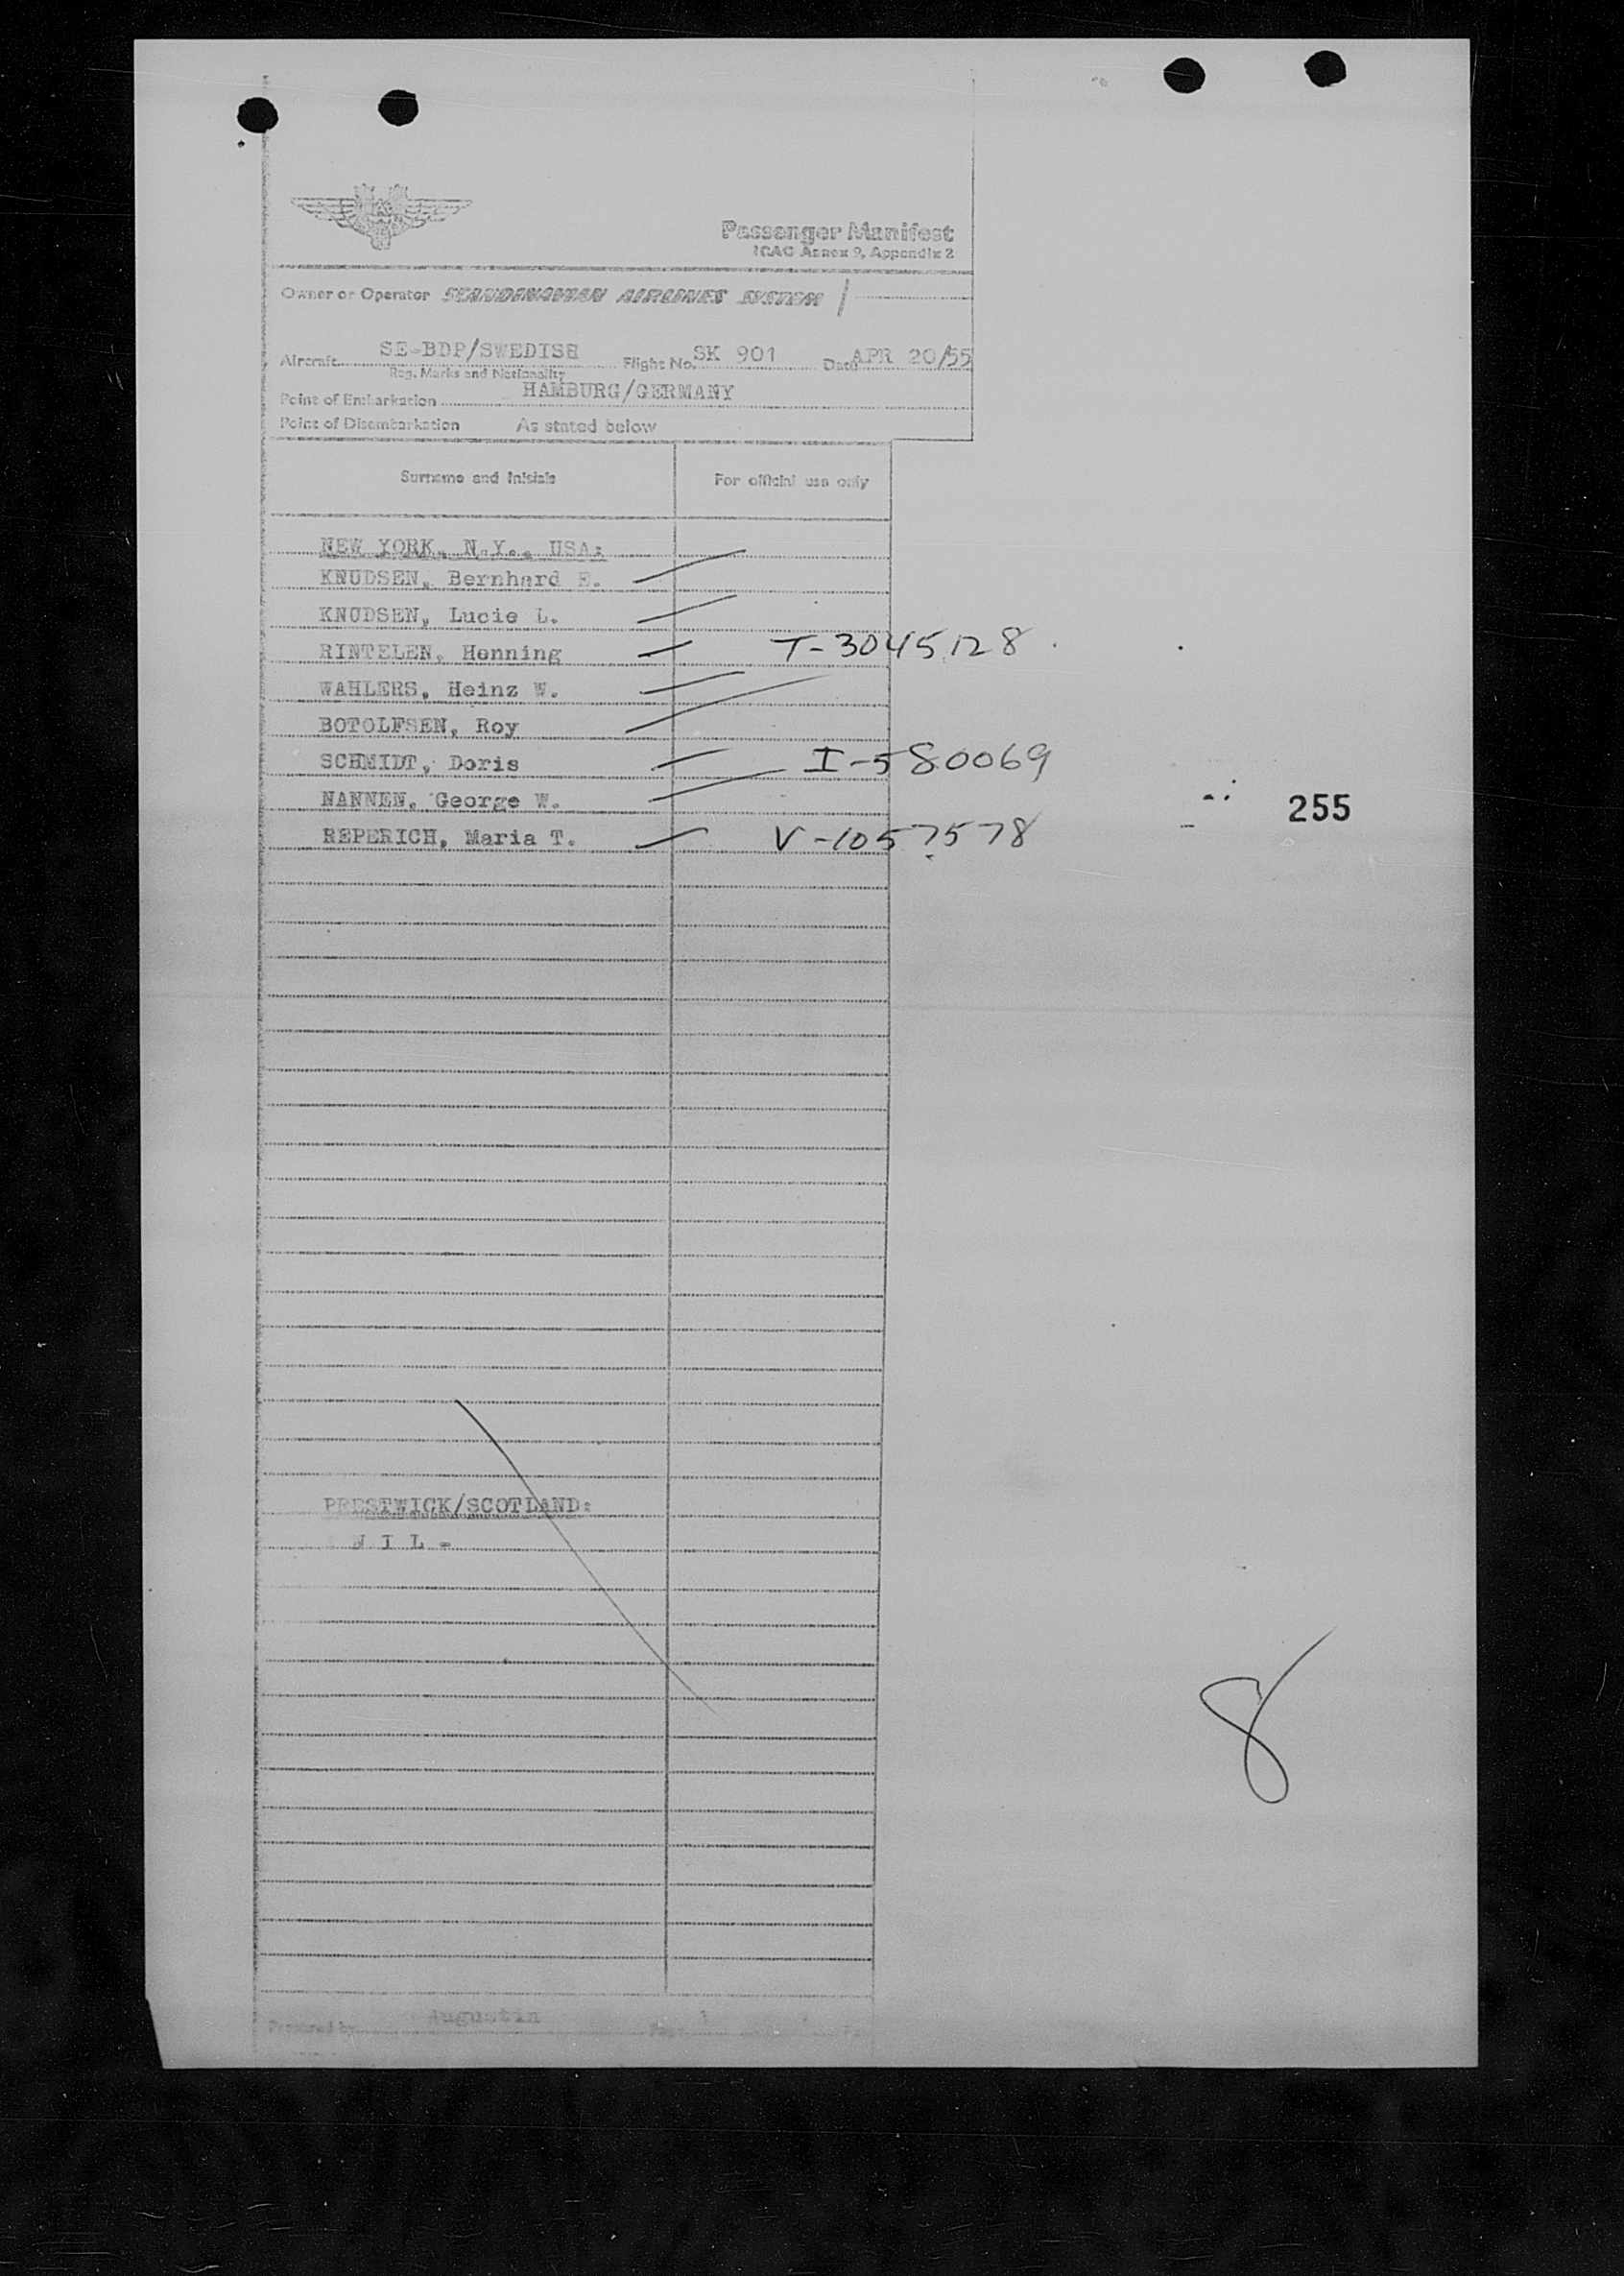 Passenger Manifest
ICAO Annex 9, Appendix 2
Owner or Operator SCANDINAVIAN AIRLINES SYSTEM
Aircraft SE-BDP/SWEDISH Flight No. SK 901 Date APR 20/55
Reg. Marks and Nationality
Point of Embarkation HAMBURG/GERMANY
Point of Disembarkation As stated below
Surname and Initials For official use only
NEW YORK, N.Y., USA:
KNUDSEN, Bernhard E.
KNUDSEN, Lucie L.
RINTELEN, Henning T-3045128
WAHLERS, Heinz W.
BOTOLFSEN, Roy
SCHMIDT, Doris I-580069
NANNEN, George W.
255
REPERICH, Maria T. V-1057578
PRESTWICK/SCOTLAND:
N I L -
8
Prepared by Augustin Page 1